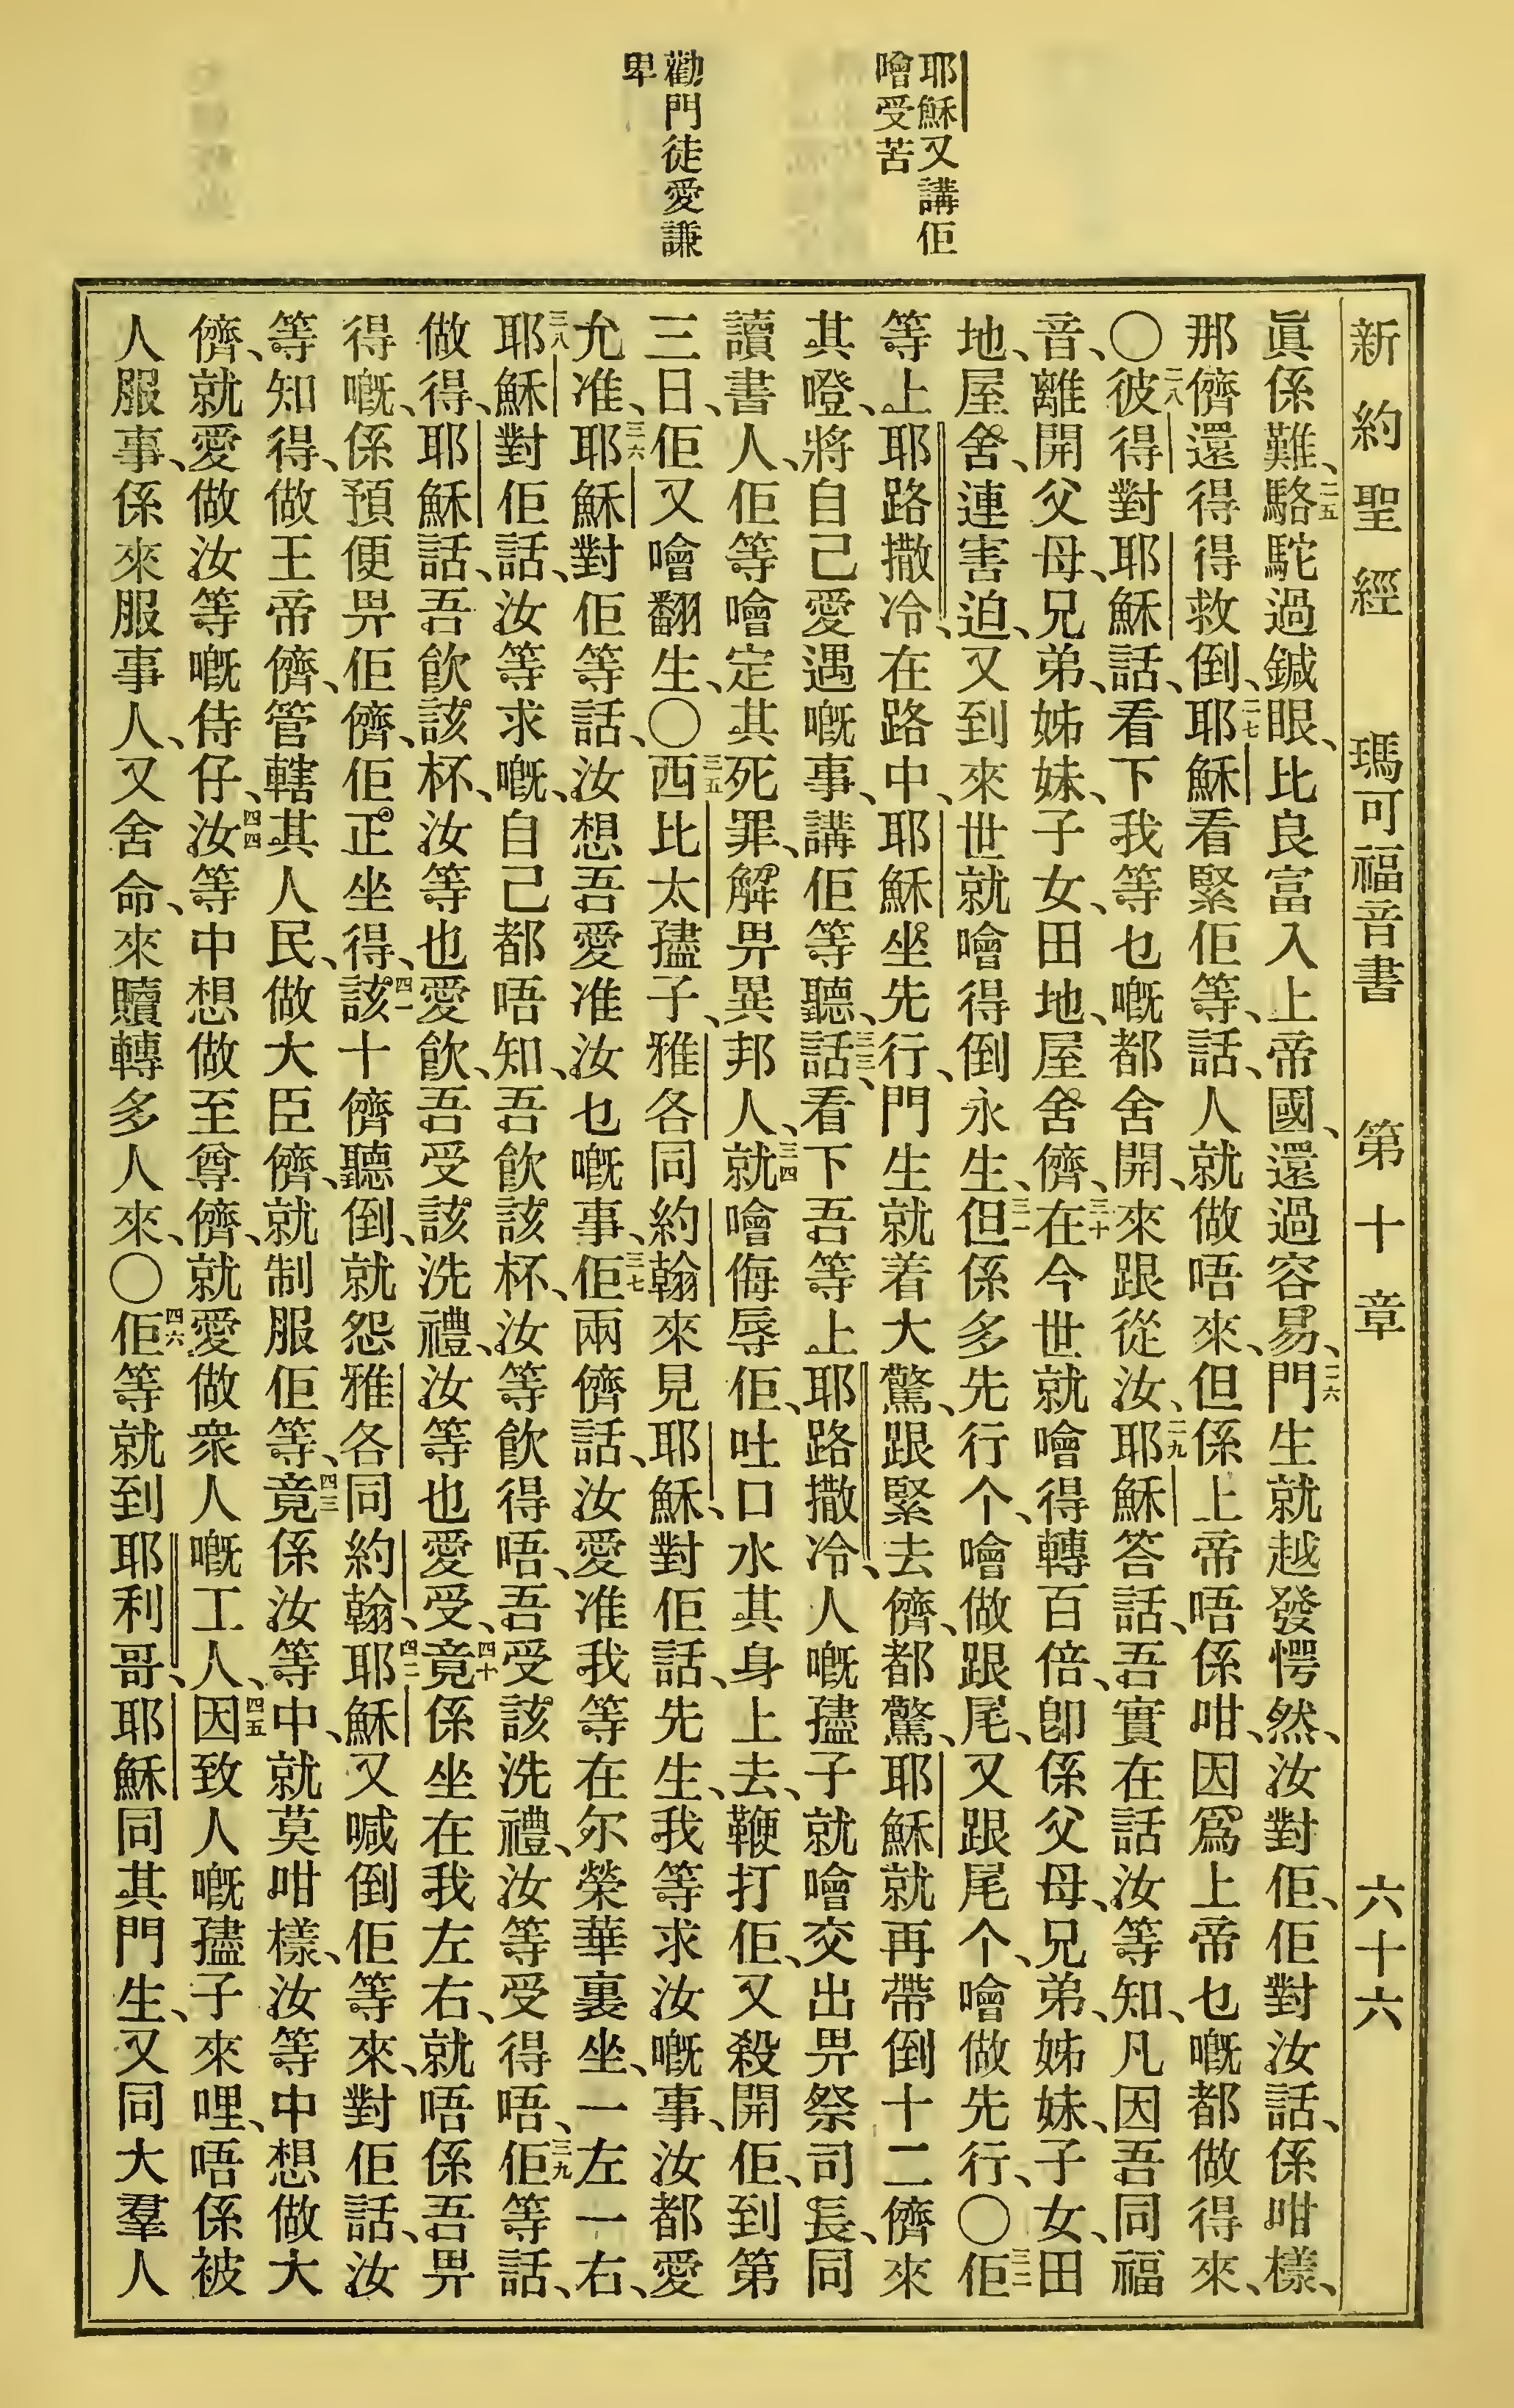 耶穌又講佢
噲受苦
勸門徒愛謙
卑
新約聖經 瑪可福音書 第十章 六十六
眞係難、二五駱駝過鍼眼、比良富入上帝國、還過容易、二六門生就越發愕然、汝對佢、佢對汝話、係咁樣、
那儕還得得救倒、二七耶穌看緊佢等、話、人就做唔來、但係上帝唔係咁、因爲上帝乜嘅都做得來、
〇二八彼得對耶穌話、看下我等乜嘅都舍開、來跟從汝、二九耶穌答話、吾實在話汝等知、凡因吾同福
音、離開父母、兄弟、姊妹、子女、田地、屋舍儕、三十在今世就噲得轉百倍、卽係父母、兄弟、姊妹、子女、田
地、屋舍、連害迫、又到來世就噲得倒永生、三一但係多先行个、噲做跟尾、又跟尾个、噲做先行、〇三二佢
等上耶路撒冷、在路中、耶穌坐先行、門生就着大驚、跟緊去儕、都驚、耶穌就再帶倒十二儕來
其嶝、將自己愛遇嘅事、講佢等聽、三三話、看下吾等上耶路撒冷、人嘅孻子就噲交出畀祭司長、同
讀書人、佢等噲定其死罪、解畀異邦人、三四就噲侮辱佢、吐口水其身上去、鞭打佢、又殺開佢、到第
三日、佢又噲翻生、〇三五西比太孻子、雅各同約翰來見耶穌、對佢話、先生、我等求汝嘅事、汝都愛
允准、三六耶穌對佢等話、汝想吾愛准汝乜嘅事、三七佢兩儕話、汝愛准我等在尔榮華裏坐、一左一右、
三八耶穌對佢話、汝等求嘅、自己都唔知、吾飮該杯、汝等飮得唔、吾受該洗禮、汝等受得唔、三九佢等話、
做得、耶穌話、吾飮該杯、汝等也愛飮、吾受該洗禮、汝等也愛受、四十竟係坐在我左右、就唔係吾畀
得嘅、係預便畀佢儕、佢正坐得、四一該十儕聽倒、就怨雅各同約翰、四二耶穌又喊倒佢等來、對佢話、汝
等知得、做王帝儕、管轄其人民、做大臣儕、就制服佢等、四三竟係汝等中、就莫咁樣、汝等中想做大
儕、就愛做汝等嘅侍仔、四四汝等中想做至尊儕、就愛做衆人嘅工人、四五因致人嘅孻子來哩、唔係被
人服事、係來服事人、又舍命、來贖轉多人來、〇四六佢等就到耶利哥、耶穌同其門生、又同大羣人